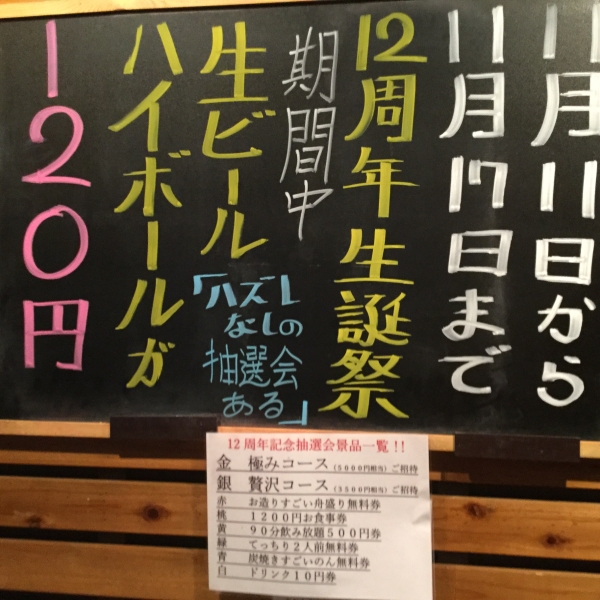 11月11日から
11月17日まで
12周年生誕祭
期間中
生ビール
ハイボールが
120円
「ハズレ
なしの
抽選会
ある」
12周年記念抽選会景品一覧!!
金 極みコース(5000円相当)ご招待
銀 贅沢コース(3500円相当)ご招待
赤 お造りすごい舟盛り無料券
桃 1200円お食事券
黄 90分飲み放題500円券
緑 てっちり2人前無料券
青 炭焼きすごいのん無料券
白 ドリンク10円券